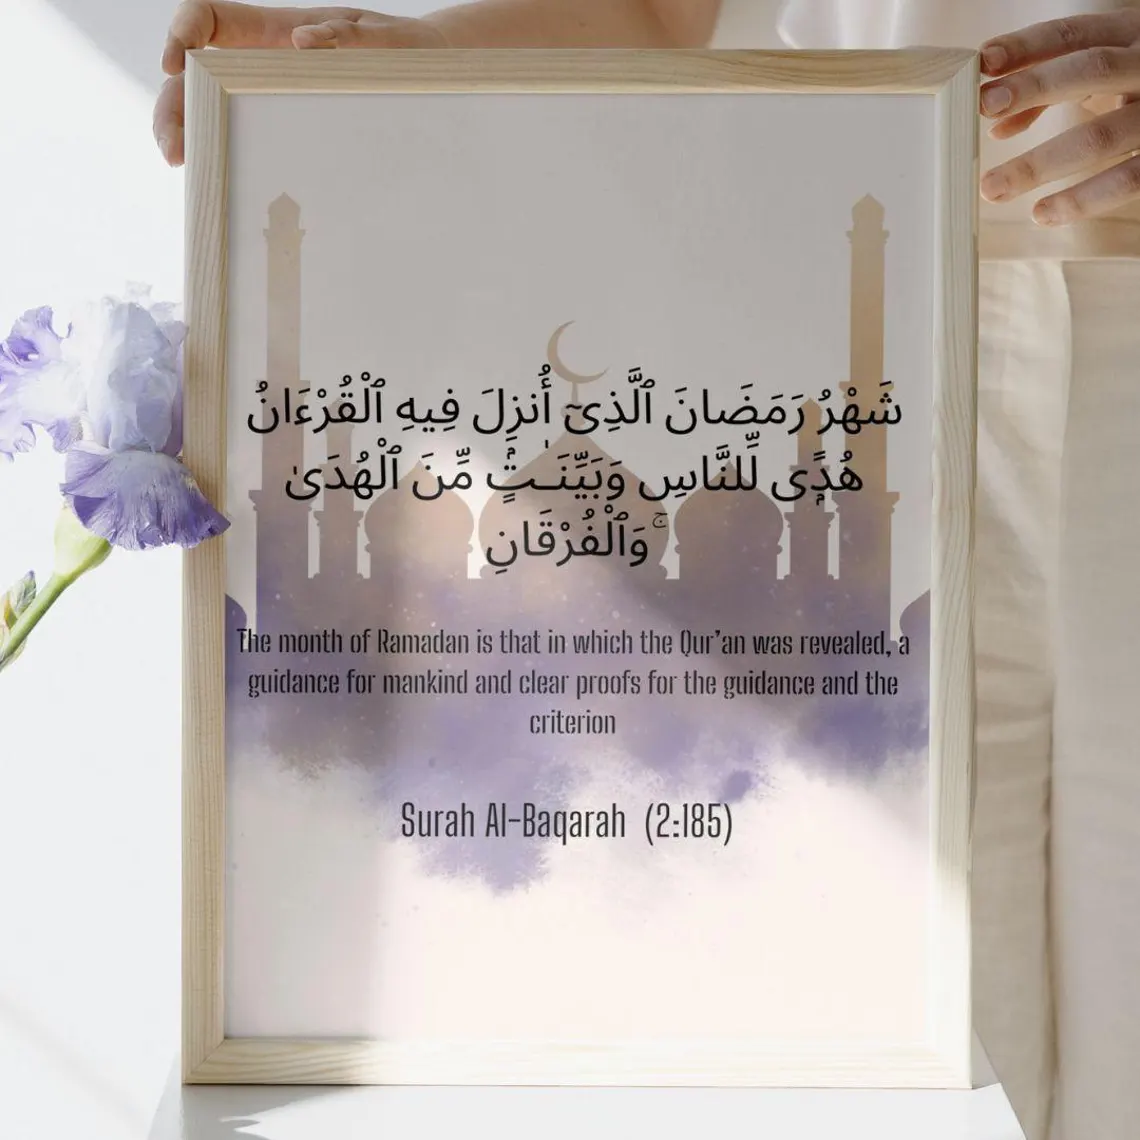 شَهْرُ رَمَضَانَ ٱلَّذِىٓ أُنزِلَ فِيهِ ٱلْقُرْءَانُ
هُدًى لِّلنَّاسِ وَبَيِّنَـٰتٍ مِّنَ ٱلْهُدَىٰ
وَٱلْفُرْقَانِ ۚ
The month of Ramadan is that in which the Qur’an was revealed, a
guidance for mankind and clear proofs for the guidance and the
criterion
Surah Al-Baqarah (2:185)